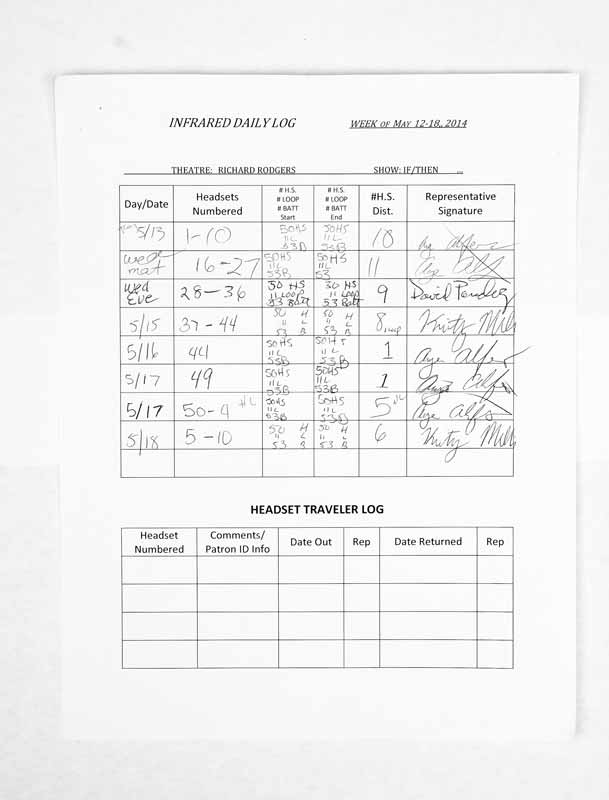 INFRARED DAILY LOG WEEK OF MAY 12-18,, 2014
THEATRE: RICHARD RODGERS SHOW: IF/THEN
Day/Date Headsets Numbered # H.S. # LOOP # BATT Start # H.S. # LOOP # BATT End #H.S. Dist. Representative Signature
5/13 1-10 50HS 11L 53B 50HS 11L 53B 10
wed mat 16-27 50HS 11L 53B 50HS 11L 53 11
wed Eve 28-36 50 HS 11 LOOP 53 Batt 50 HS 11 LOOP 53 Batt 9 David
5/15 37-44 50 H 11 L 53 B 50 H 11 L 53 B 8
5/16 44 50HS 11L 53B 50HS 11L 53B 1
5/17 49 50HS 11L 53B 50HS 11L 53B 1
5/17 50-4 50HS 11L 53B 50HS 11L 53B 5
5/18 5-10 50 H 11 L 53 B 50 H 11 L 53 B 6
HEADSET TRAVELER LOG
Headset Numbered Comments/ Patron ID Info Date Out Rep Date Returned Rep